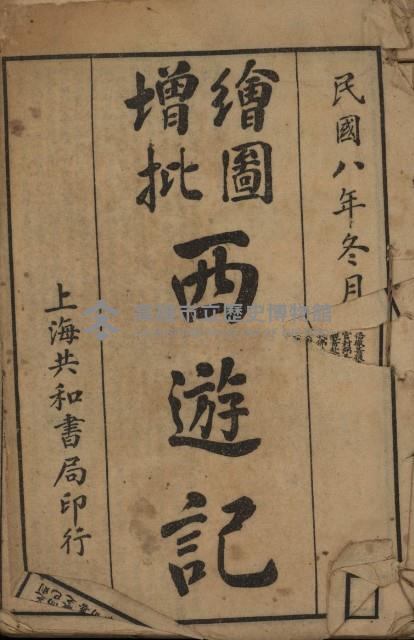 民國八年冬月
繪圖
增批
西遊記
上海共和書局印行
高雄市立歷史博物館